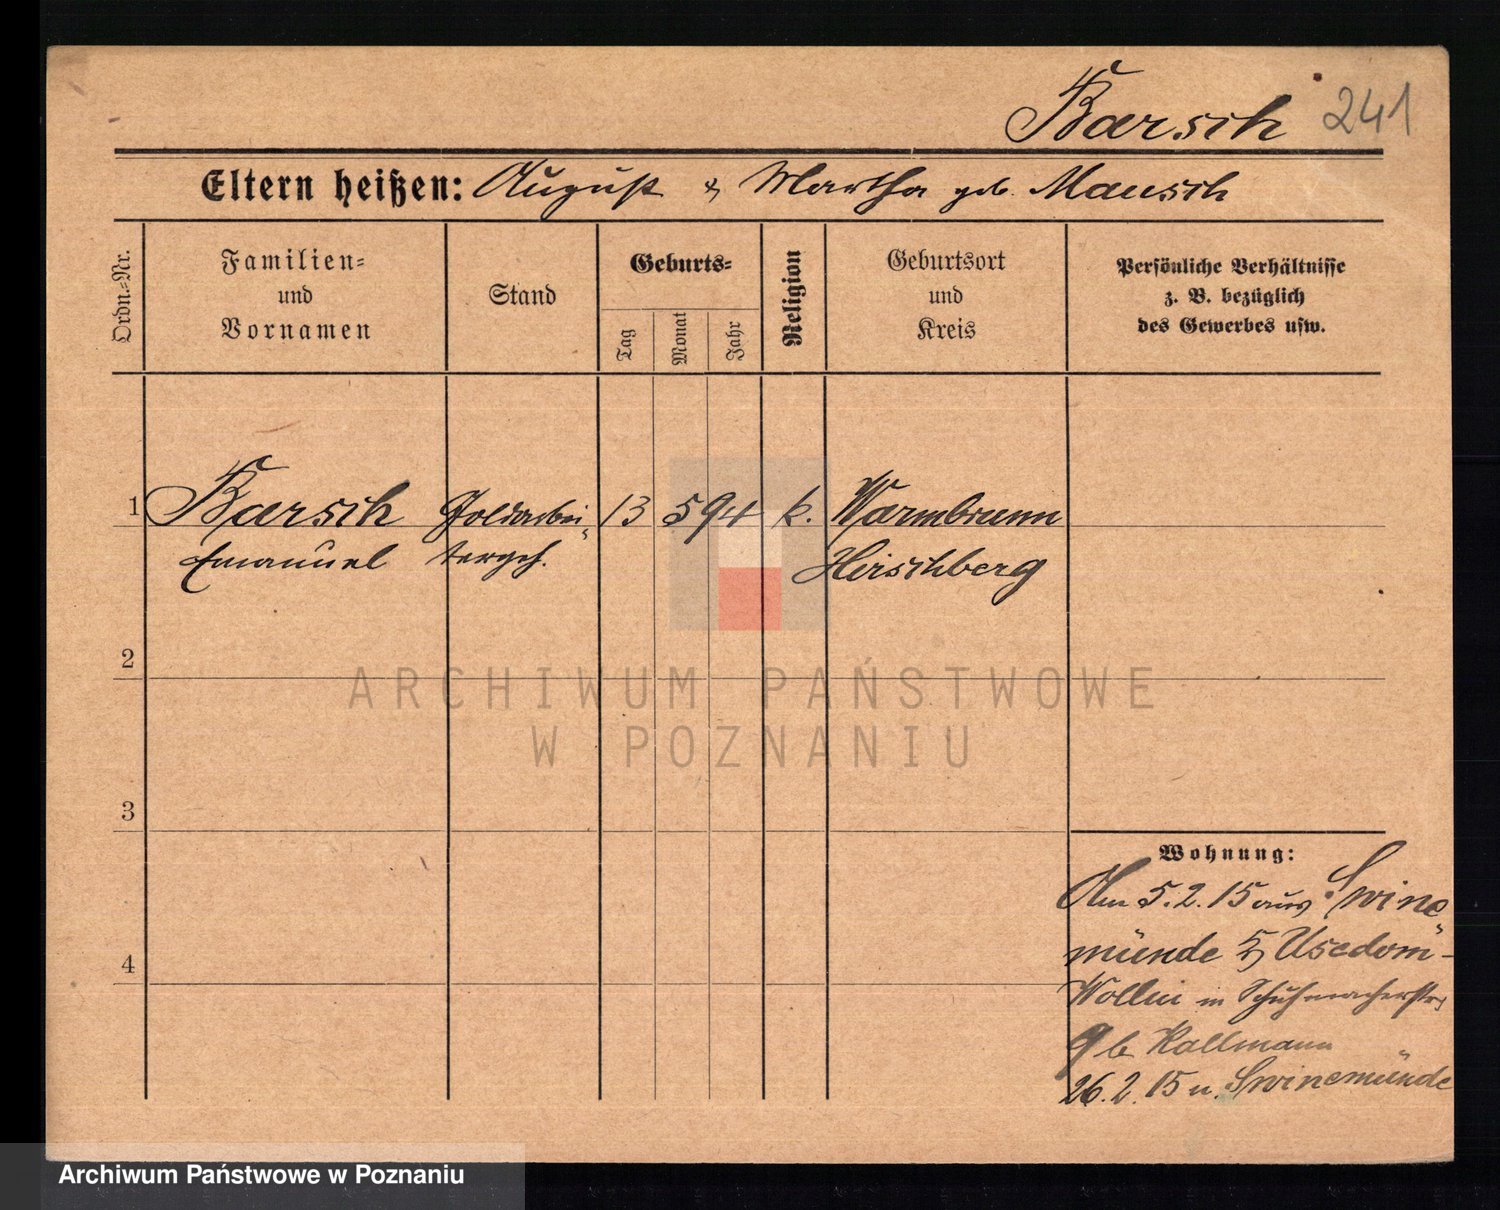 Barsch 241
Eltern heißen: August & Martha geb. Mausch
Ordn.-Nr.
Familien-
und
Vornamen
Stand
Geburts-
Tag
Monat
Jahr
Religion
Geburtsort
und
Kreis
Persönliche Verhältnisse
z. B. bezüglich
des Gewerbes usw.
1 Barsch Goldarbei- 13 5 94 k. Warmbrunn
Emanuel tergeh. Hirschberg
2
3
4
Wohnung:
Am 5.2.15 aus Swine-
münde Usedom-
Wollin in Schuhmacherstr.
9 b Kallmann
26.2.15 n. Swinemünde
ARCHIWUM PAŃSTWOWE
W POZNANIU
Archiwum Państwowe w Poznaniu